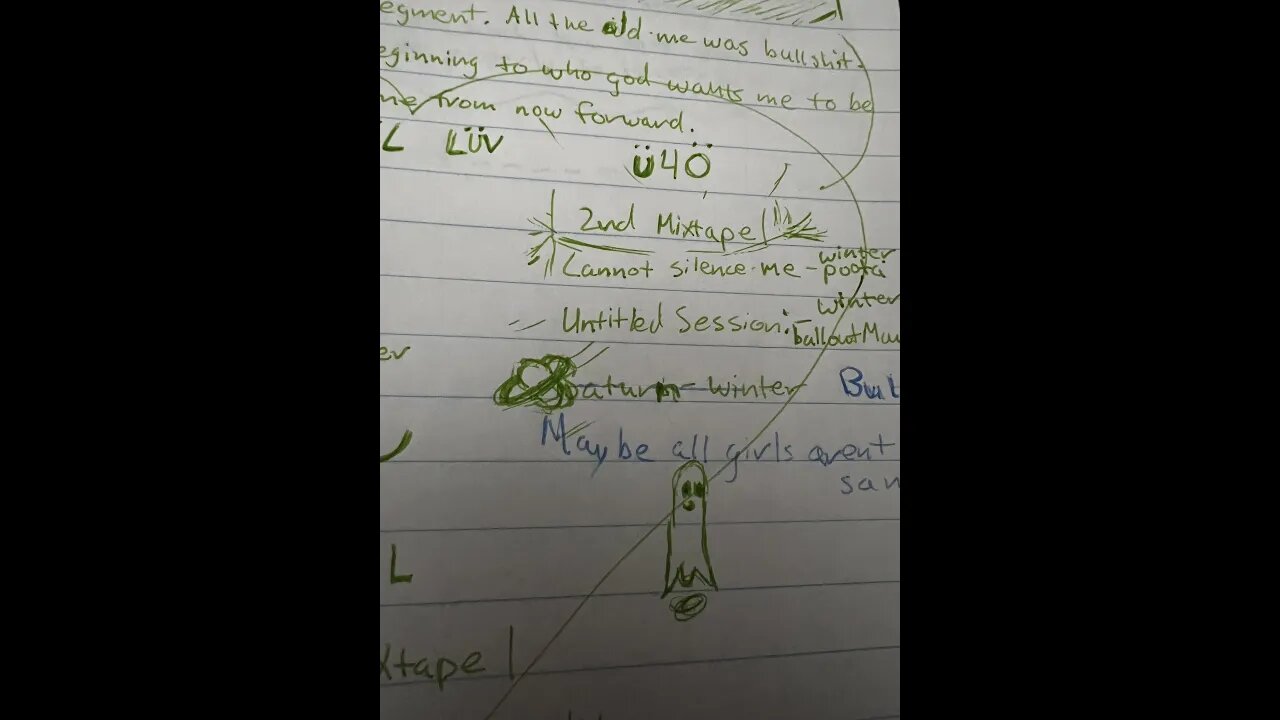 egment. All the old me was bullshit.
eginning to who god wants me to be
me from now forward.
L LÜV
Ü4Ö
2nd Mixtape
Cannot silence me - winter poota
Untitled Session: - winter balloutMau
er
Saturn - winter Bul
Maybe all girls arent
san
L
xtape